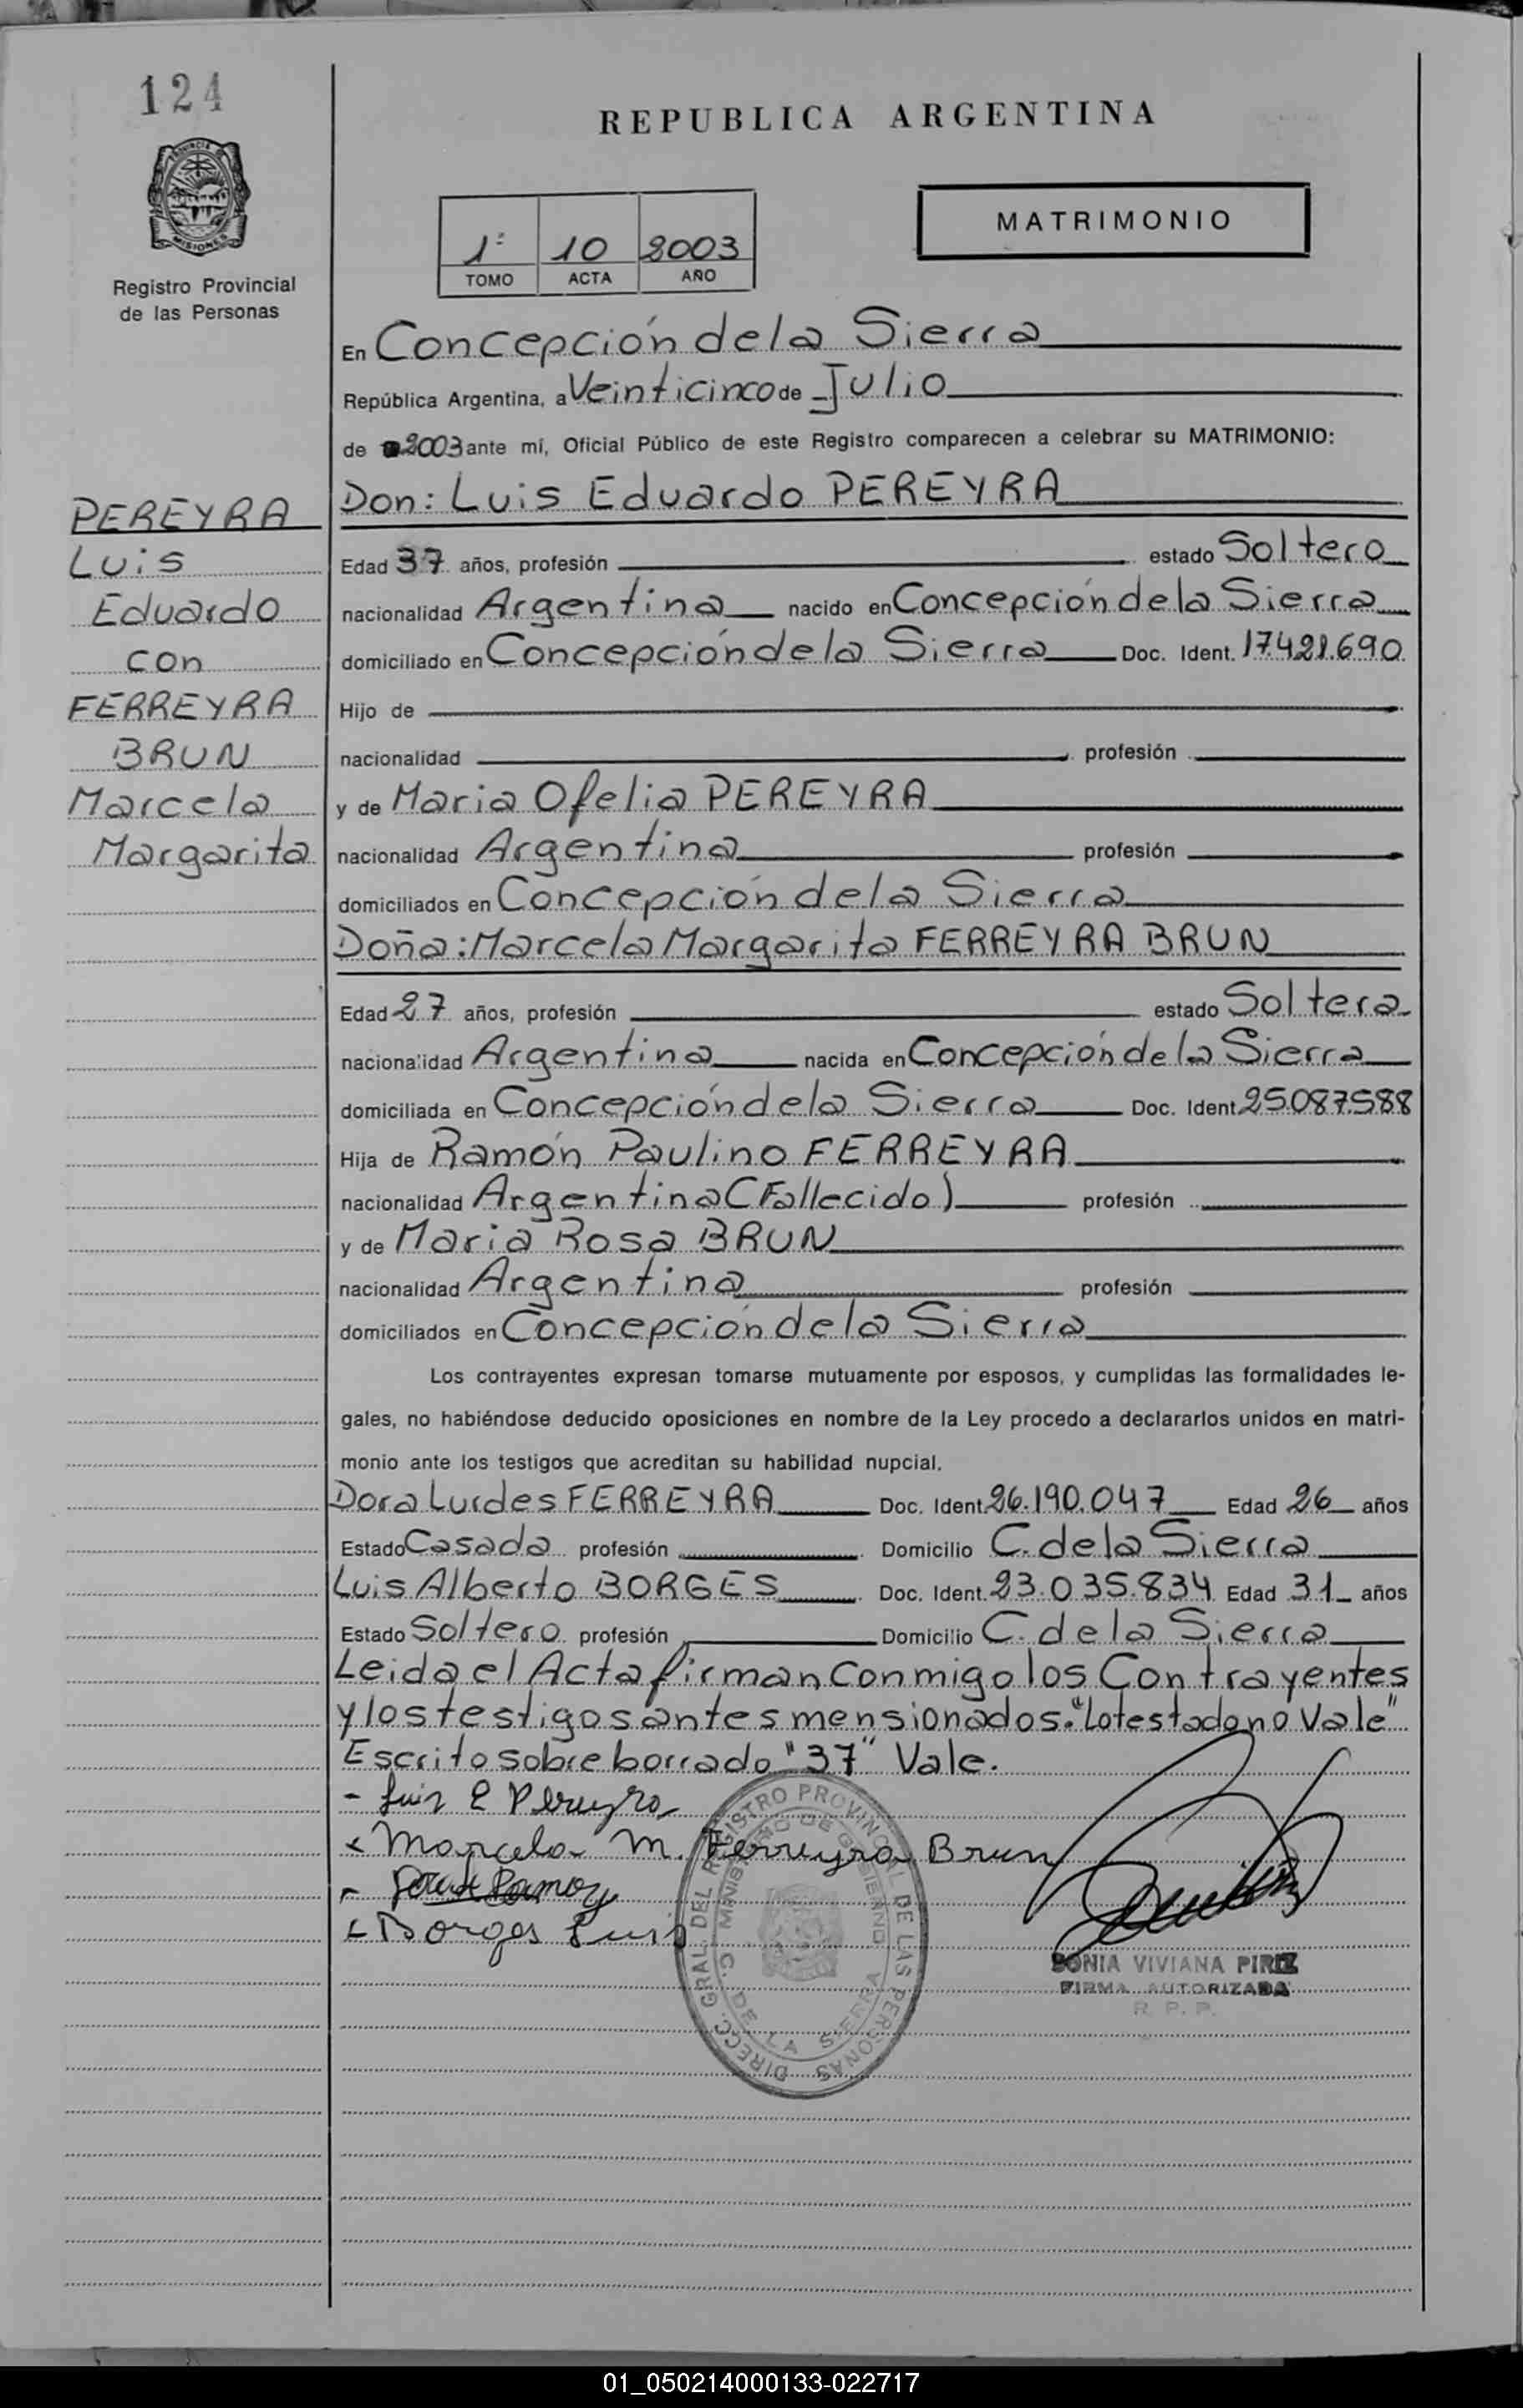 124
PROVINCIA
MISIONES
Registro Provincial
de las Personas
REPUBLICA ARGENTINA
1º 10 2003
TOMO ACTA AÑO
MATRIMONIO
PEREYRA
Luis
Eduardo
con
FERREYRA
BRUN
Marcela
Margarita
En Concepción de la Sierra
República Argentina, a Veinticinco de Julio
de 2003 ante mí, Oficial Público de este Registro comparecen a celebrar su MATRIMONIO:
Don: Luis Eduardo PEREYRA
Edad 37 años, profesión estado Soltero
nacionalidad Argentina nacido en Concepción de la Sierra
domiciliado en Concepción de la Sierra Doc. Ident. 17.421.690
Hijo de
nacionalidad profesión
y de Maria Ofelia PEREYRA
nacionalidad Argentina profesión
domiciliados en Concepción de la Sierra
Doña: Marcela Margarita FERREYRA BRUN
Edad 27 años, profesión estado Soltera
nacionalidad Argentina nacida en Concepción de la Sierra
domiciliada en Concepción de la Sierra Doc. Ident. 25.087.588
Hija de Ramón Paulino FERREYRA
nacionalidad Argentina (Fallecido) profesión
y de Maria Rosa BRUN
nacionalidad Argentina profesión
domiciliados en Concepción de la Sierra
Los contrayentes expresan tomarse mutuamente por esposos, y cumplidas las formalidades le-
gales, no habiéndose deducido oposiciones en nombre de la Ley procedo a declararlos unidos en matri-
monio ante los testigos que acreditan su habilidad nupcial.
Dora Lurdes FERREYRA Doc. Ident. 26.190.047 Edad 26 años
Estado Casada profesión Domicilio C. de la Sierra
Luis Alberto BORGES Doc. Ident. 23.035.834 Edad 31 años
Estado Soltero profesión Domicilio C. de la Sierra
Leida el Acta firman conmigo los Contrayentes
y los testigos antes mensionados. "Lo testado no Vale"
Escrito sobre borrado "37" Vale.
- Luis E Pereyra
x Marcela M. Ferreyra Brun
x Borges Luis
DIRECC. GRAL. DEL REGISTRO PROVINCIAL DE LAS PERSONAS
MINISTERIO DE GOBIERNO
C. DE LA SIERRA
SONIA VIVIANA PIRIZ
FIRMA AUTORIZADA
R. P. P.
01_050214000133-022717